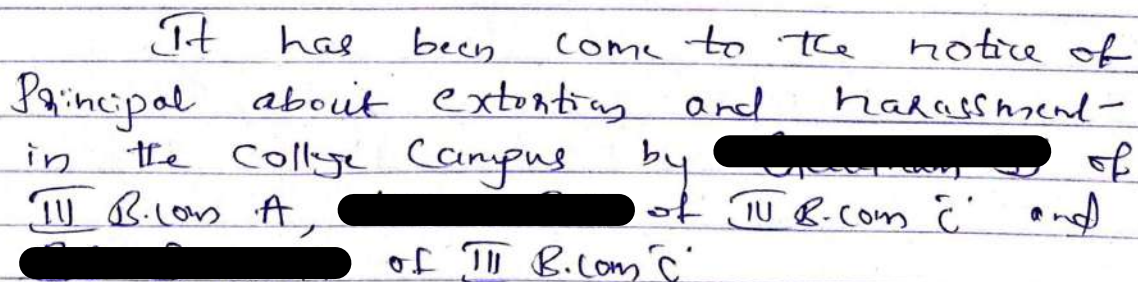 It has been come to the notice of
Principal about extortion and harassment
in the College Campus by of
III B.com A, of III B.com 'C' and
of III B.com 'C'